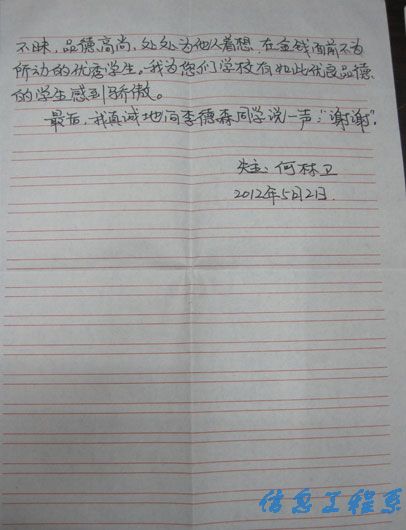 不昧，品德高尚，处处为他人着想，在金钱面前不为
所动的优秀学生。我为您们学校有如此优良品德
的学生感到骄傲。
最后，我真诚地向李德森同学说一声：“谢谢”。
失主：何林卫
2012年5月2日.
信息工程系